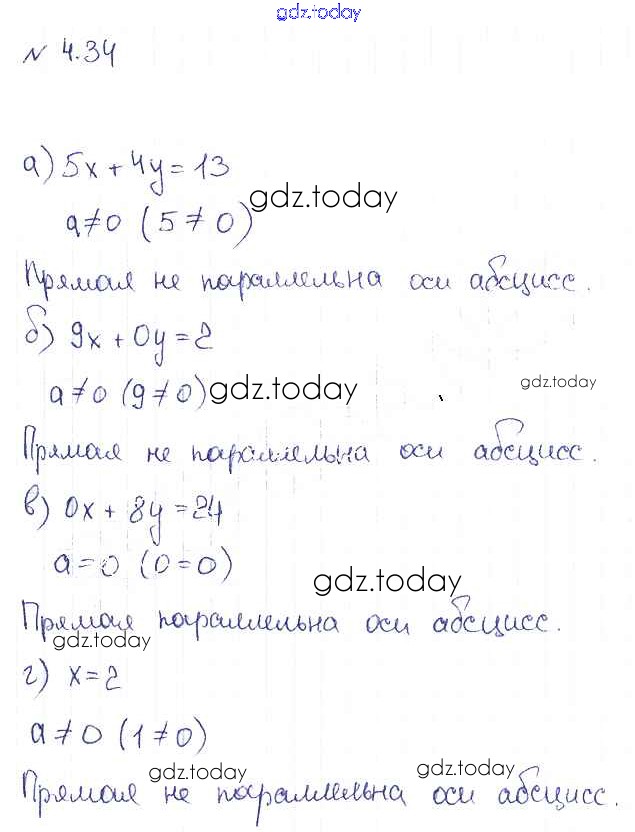 gdz.today
№ 4.34
а) 5x + 4y = 13
gdz.today
a ≠ 0 (5 ≠ 0)
Прямая не параллельна оси абсцисс.
б) 9x + 0y = 2
gdz.today
a ≠ 0 (9 ≠ 0) gdz.today
Прямая не параллельна оси абсцисс.
в) 0x + 8y = 24
a = 0 (0 = 0)
gdz.today
Прямая параллельна оси абсцисс.
gdz.today
г) x = 2
a ≠ 0 (1 ≠ 0)
gdz.today gdz.today
Прямая не параллельна оси абсцисс.